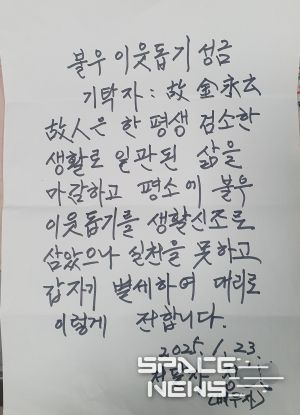 불우 이웃돕기 성금
기탁자 : 故 金永玄
故人은 한 평생 검소한
생활로 일관된 삶을
마감하고 평소에 불우
이웃돕기를 생활신조로
삼았으나 실천을 못하고
갑자기 별세하여 대리로
이렇게 전합니다.
2025. 1. 23.
SPACE
NEWS